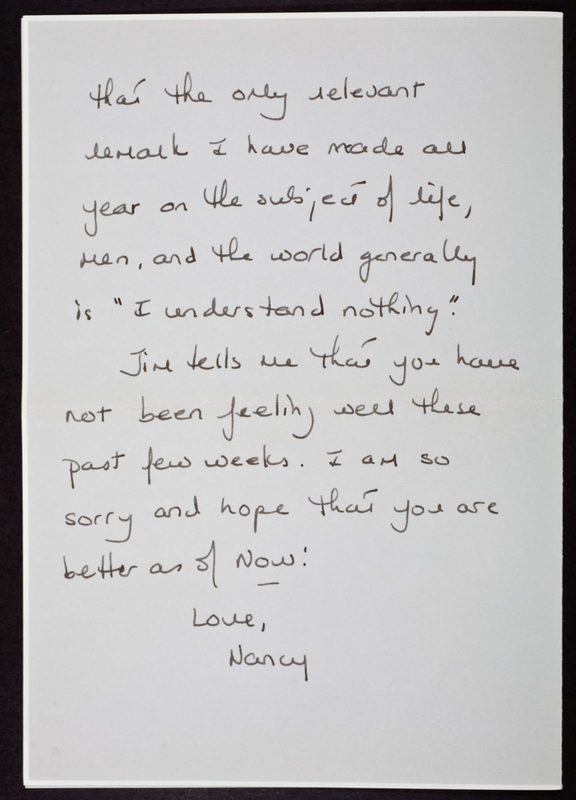 that the only relevant
remark I have made all
year on the subject of life,
men, and the world generally
is "I understand nothing".
Jim tells me that you have
not been feeling well these
past few weeks. I am so
sorry and hope that you are
better as of Now!
Love,
Nancy